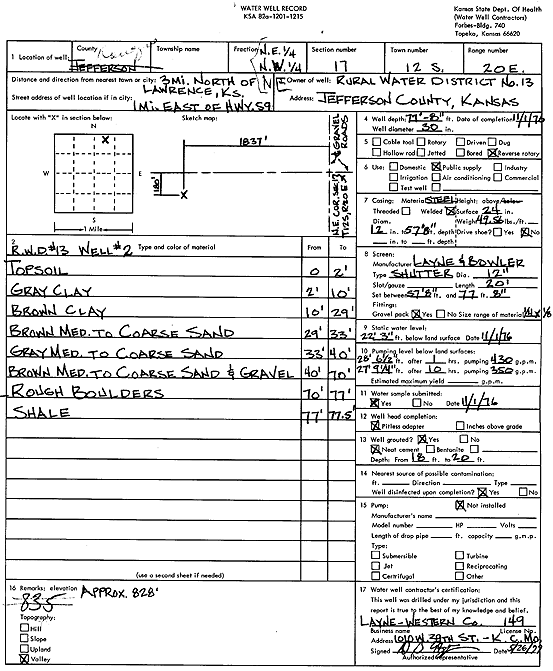 WATER WELL RECORD
KSA 82a-1201-1215
Kansas State Dept. Of Health
(Water Well Contractors)
Forbes-Bldg. 740
Topeka, Kansas 66620
1 Location of well: County JEFFERSON Township name Fraction N.E. 1/4 N.W. 1/4 Section number 17 Town number 12 S. Range number 20 E.
Distance and direction from nearest town or city: 3 MI. NORTH OF LAWRENCE, KS.
Street address of well location if in city: 1 MI. EAST OF HWY. 59
N E
Owner of well: RURAL WATER DISTRICT NO. 13
Address: JEFFERSON COUNTY, KANSAS
Locate with "X" in section below:
N
X
W E
S
1 Mile
Sketch map:
1837'
1180'
X
N.E. COR. SEC. 17
T12S, R20E
GRAVEL ROADS
2 R.W.D. #13 WELL #2 Type and color of material From To
TOPSOIL 0 2'
GRAY CLAY 2' 10'
BROWN CLAY 10' 29'
BROWN MED. TO COARSE SAND 29' 33'
GRAY MED. TO COARSE SAND 33' 40'
BROWN MED. TO COARSE SAND & GRAVEL 40' 70'
ROUGH BOULDERS 70' 77'
SHALE 77' 77.5'
(use a second sheet if needed)
16 Remarks: elevation APPROX. 828'
835
Topography:
Hill
Slope
Upland
X Valley
4 Well depth 77'-8" ft. Date of completion 11/1/76
Well diameter 30 in.
5 Cable tool Rotary Driven Dug
Hollow rod Jetted Bored X Reverse rotary
6 Use: Domestic X Public supply Industry
Irrigation Air conditioning Commercial
Test well
7 Casing: Material STEEL Height: above/below
Threaded Welded X Surface 24 in.
Diam. Weight 49.56 lbs./ft.
12 in. to 57'8" ft. depth Drive shoe? Yes X No
in. to ft. depth
8 Screen:
Manufacturer LAYNE & BOWLER
Type SHUTTER Dia. 12"
Slot/gauze Length 20'
Set between 57'8" ft. and 77 ft. 8"
Fittings:
Gravel pack X Yes No Size range of material 1/4 X 1/8
9 Static water level:
22' 3" ft. below land surface Date 11/1/76
10 Pumping level below land surfaces:
28' 6 1/2 ft. after 1 hrs. pumping 430 g.p.m.
27' 9 1/4" ft. after 10 hrs. pumping 350 g.p.m.
Estimated maximum yield g.p.m.
11 Water sample submitted:
X Yes No Date 11/1/76
12 Well head completion:
X Pitless adapter Inches above grade
13 Well grouted? X Yes No
X Neat cement Bentonite
Depth: From 18 ft. to 20 ft.
14 Nearest source of possible contamination:
ft. Direction Type
Well disinfected upon completion? X Yes No
15 Pump: X Not installed
Manufacturer's name
Model number HP Volts
Length of drop pipe ft. capacity g.m.p.
Type:
Submersible Turbine
Jet Reciprocating
Certrifugal Other
17 Water well contractor's certification:
This well was drilled under my jurisdiction and this
report is true to the best of my knowledge and belief.
LAYNE-WESTERN CO. 149
Business name License No.
Address 1010 W. 39TH ST. - K.C. MO.
Signed Date 8/26/77
Authorized representative